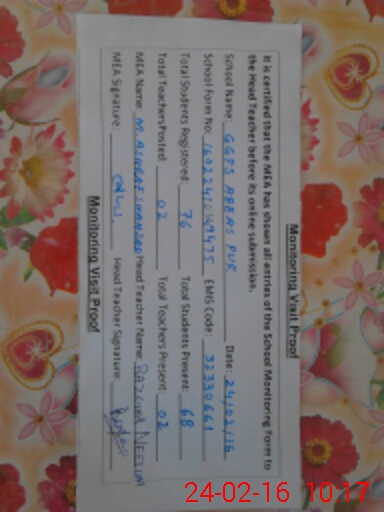 Monitoring Visit Proof
It is certified that the MEA has shown all entries of the School Monitoring Form to
the Head Teacher before its online submission.
School Name: GGPS ABBAS PUR Date: 24/02/16
School Form No: EMIS Code: 32330661
Total Students Registered: 76 Total Students Present: 68
Total Teachers Posted: 02 Total Teachers Present: 02
MEA Name: M. ASHRAF SHAHZAD Head Teacher Name:
MEA Signature: Head Teacher Signature:
Monitoring Visit Proof
24-02-16 10:17